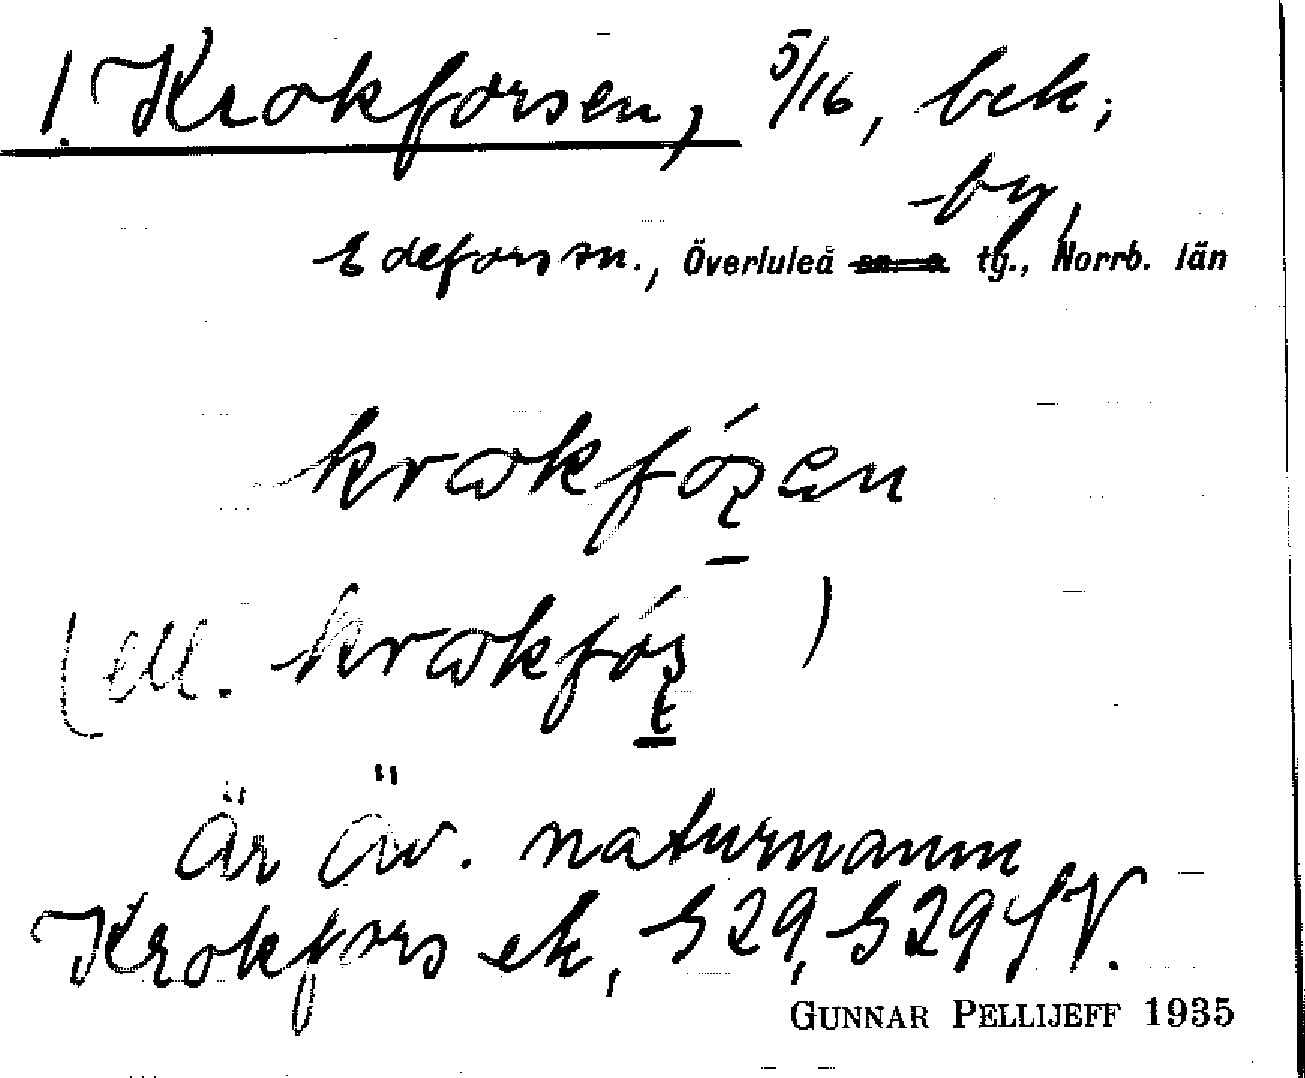 1. Krokforsen, 5/16, bek,
-by,
Edefors sn., Överluleå tg., Norrb. län
Är äv. naturnamn
Krokfors ek, S 29, S 29 SV.
GUNNAR PELLIJEFF 1935